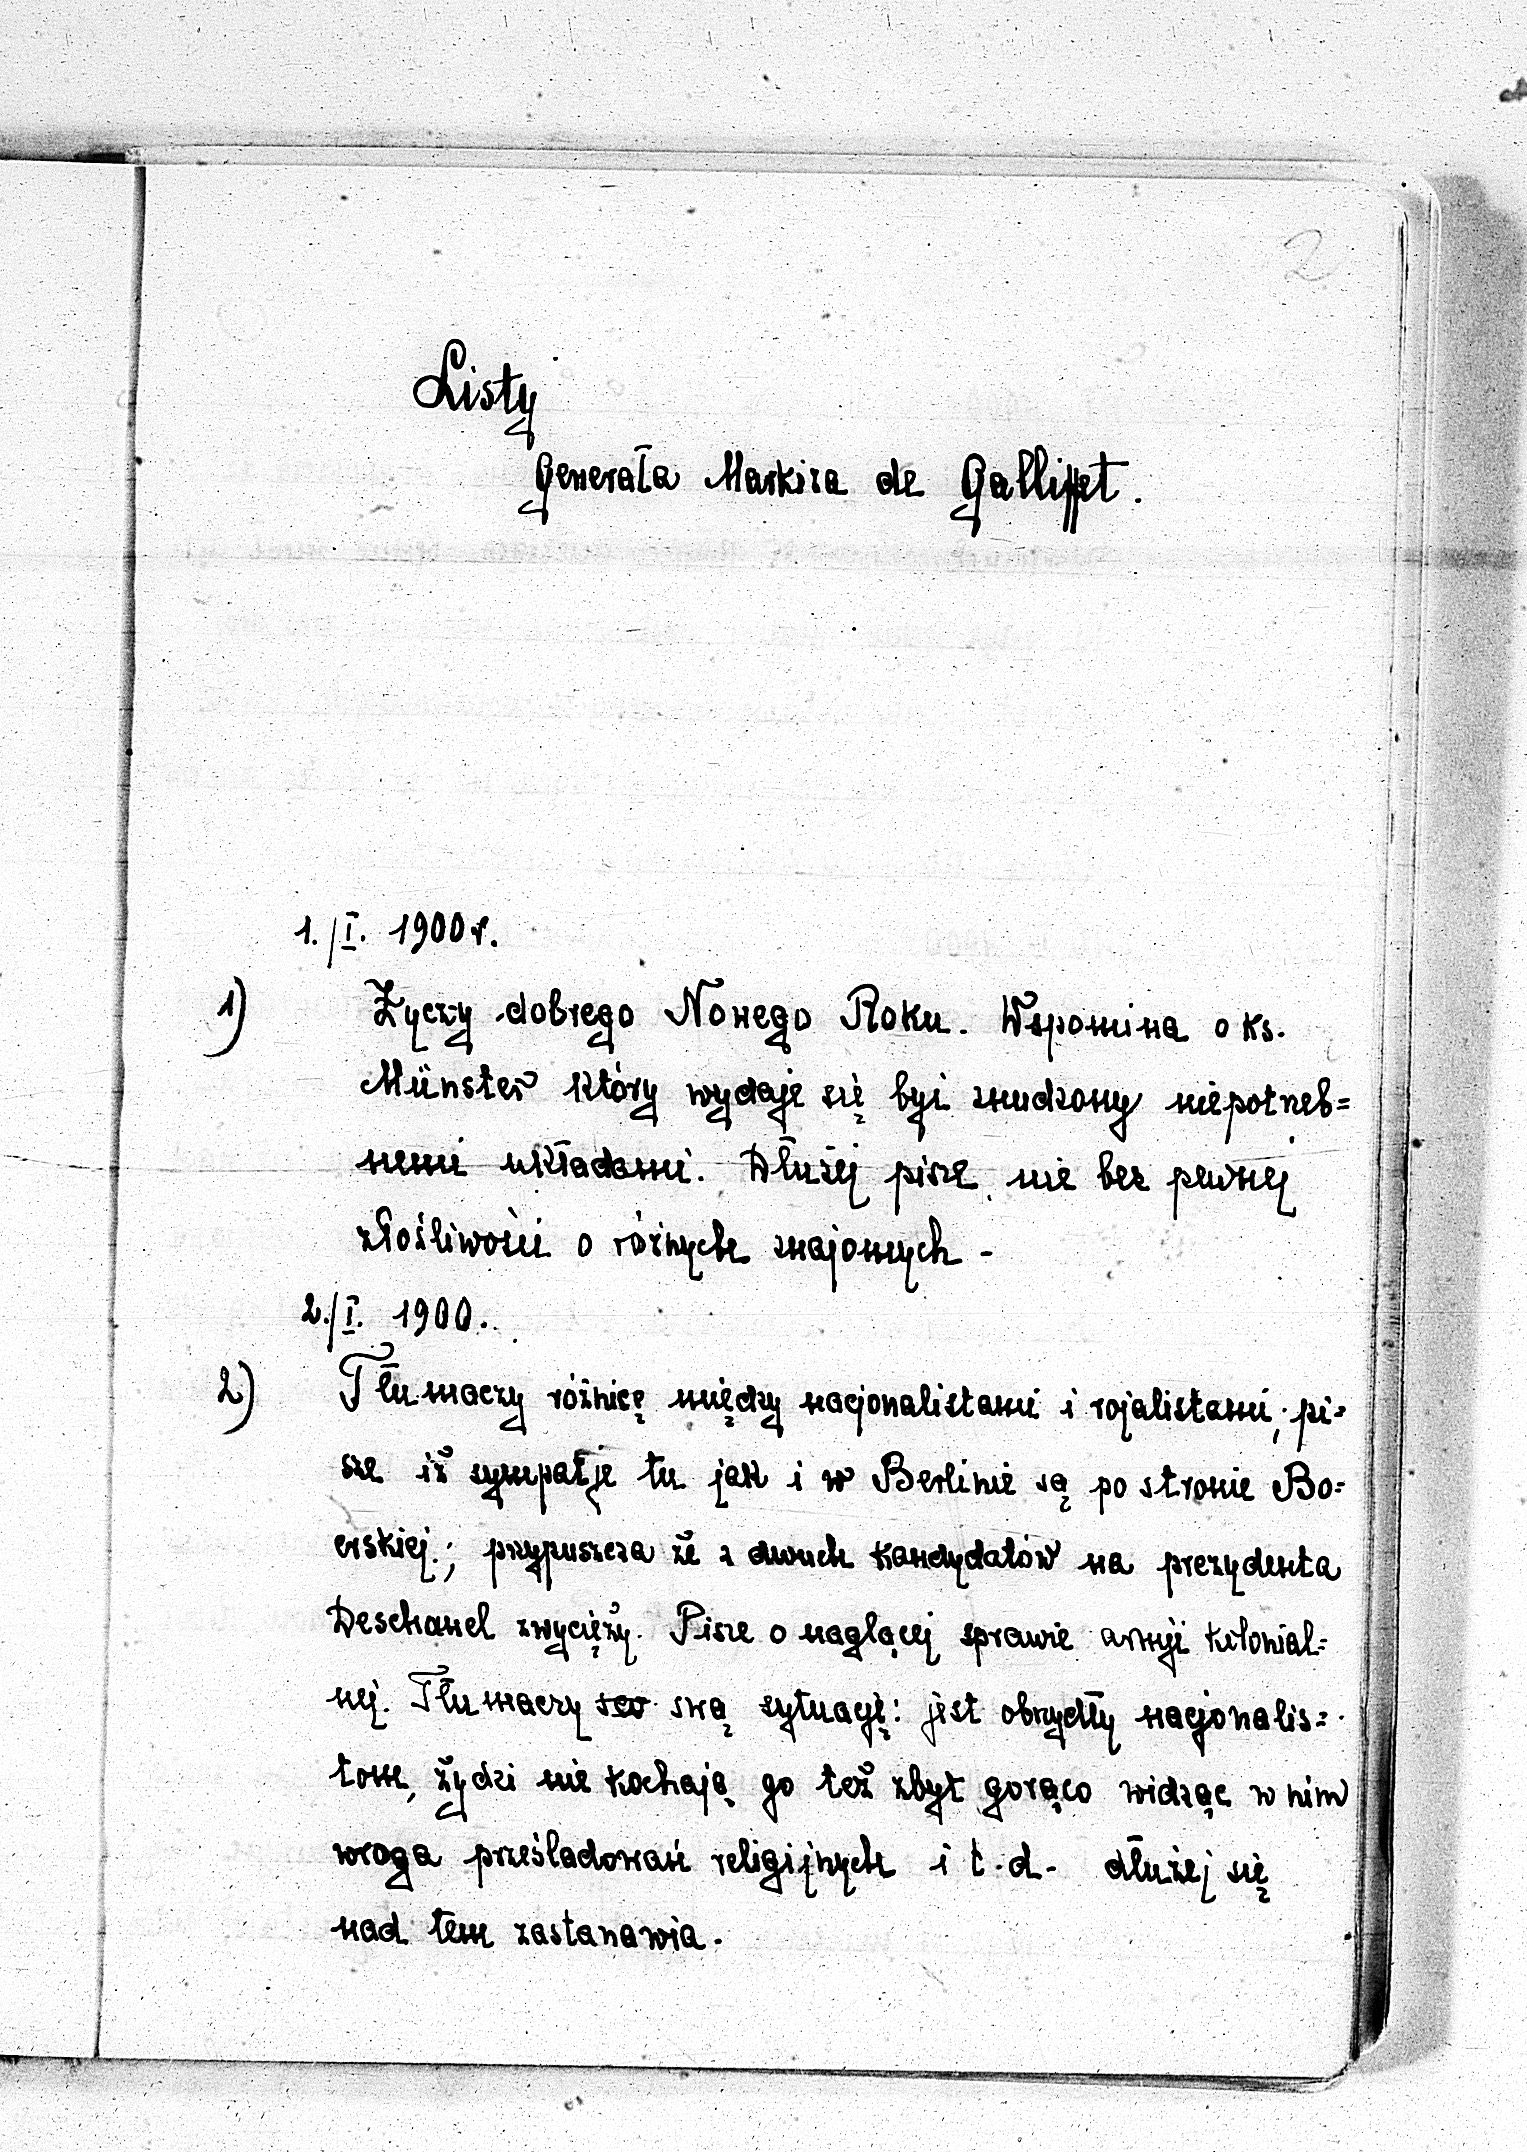 2
Listy
Generała Markiza de Galliffet.
1./I. 1900 r.
1) Życzy dobrego Nowego Roku. Wspomina o ks.
Münster który wydaje się być znudzony niepotrzeb=
nemi układami. Dłużej pisze, nie bez pewnej
złośliwości o różnych znajomych -
2./I. 1900.
2) Tłumaczy różnicę między nacjonalistami i rojalistami; pi=
sze iż sympatje tu jak i w Berlinie są po stronie Bo=
erskiej.; przypuszcza że z dwuch kandydatów na prezydenta
Deschanel zwycięży. Pisze o naglącej sprawie armji kolonial=
nej. Tłumaczy swą sytuację: jest obrzydły nacjonalis=
tom, żydzi nie kochają go też zbyt gorąco widząc w nim
wroga prześladowań religijnych i t.d. dłużej się
nad tem zastanawia.